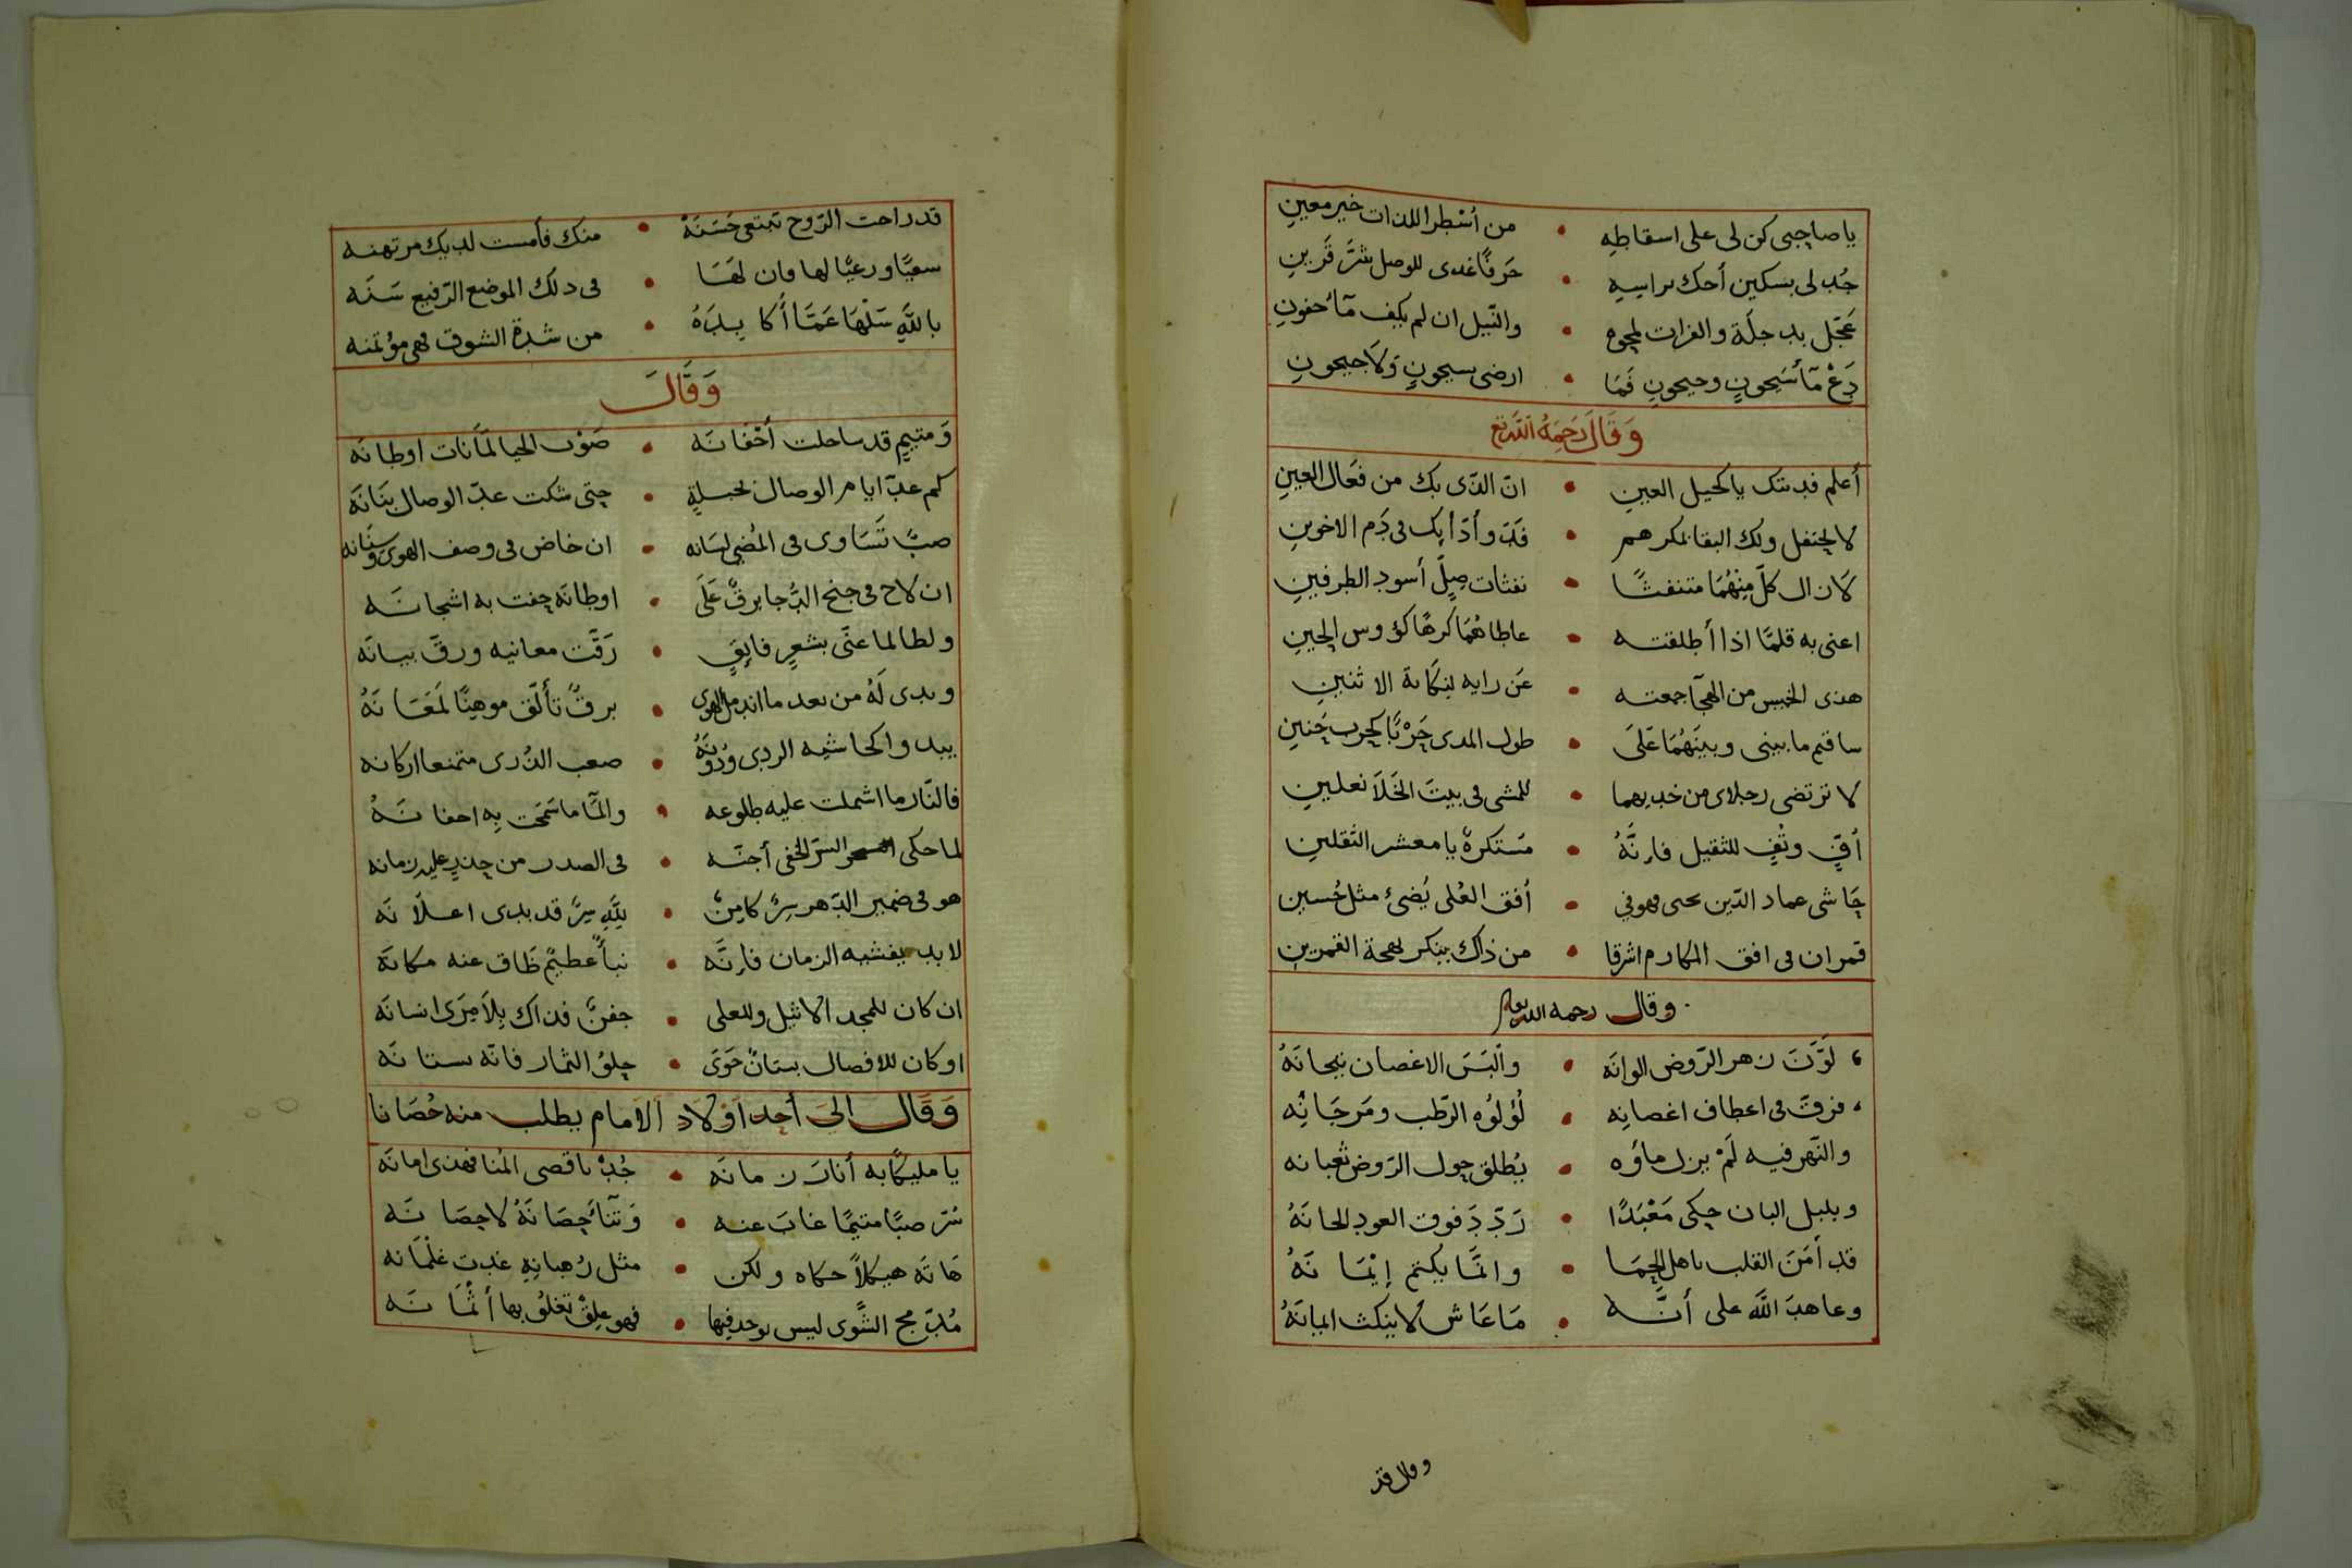 يا صاحبي كن لي على اسقاطه • من أشطر اللذات خير معين
جُد لي بسكين أحك براسه • حَرفًا غدى للوصل شرَّ قَرين
عَجّل بدجلة والفرات لمحوه • والنّيل ان لم يكف مآ جفوني
دَعْ مآ سَيحونٍ وجيحونِ فَمَا • ارضى بسيحونٍ ولَا جيحونِ
وَقَالَ رَحِمَهُ اللّه تع
أعلم فديتك يا كحيل العين • انّ الذّى بك من فعَال العين
لا تحتفل ولك البقا بمكرهم • فَدَوأ دَأبك فى دَم الاخوين
لَا زال كلّ مِنْهُمَا متنفثًا • نفثات صِلّ أسود الطرفين
اعنى به قلمًا اذا أطلقته • عاطاهُمَا كرهًا كؤوس الحين
هذى الخميس من الهجآ جمعته • عَن رايه لنكاية الاثنين
ساقتم ما بينى وبينَهُمَا عَلَى • طول المدى حَرْبًا كحرب حُنين
لا ترتضى رجلاى من خديهما • للمشى فى بيت الخَلَا نعلين
أفٍّ وتُفٍ للثقيل فانّهُ • مَستكرهٌ يا معشر الثقلين
حَاشى عماد الدّين يحيى فهو في • أفق العُلى يُضئ مثل حُسين
قمران فى افق المكارم اشرقا • من ذاك ينكر بهجة القمرين
وقال رحمه الله تع
لَوَّنَ زهر الرّوض الوانَه • وألبَسَ الاغصان تيجانَهُ
فرقّ فى اعطاف اغصانِه • لُؤلُؤه الرّطب ومَرجَانُه
والنّهر فيه لَمْ يزل ماؤه • يُطلق حول الرّوض ثعبانه
وبلبل البان حكى مَعْبَدًا • رَدّدَ فوق العود الحانَهُ
قد أمَنَ القلب باهل الحِمَا • وانّما يكتم إيْمَانَهُ
وعاهدَ اللَّه على أنَّه • مَا عَاش لا ينكث ايمانَهُ
وقال قد
قد راحت الرّوح تبتغى حَسَنَهْ • منك فأمست لديك مرتهنه
سقيًا ورعيًا لها وان لهَا • فى ذلك الموضع الرّفيع سَنَه
باللَّهِ سَلْهَا عَمَّا أُكابِدَهُ • من شدة الشوق فهى مؤتمنه
وَقَالَ
وَمتيمٍ قد ساحلت أجْفانَه • صَوْب الحيا لمّا نات اوطانَه
كم عدّ ايام الوصال لخبلةٍ • حتى شكت عدّ الوصال بنَانَه
صبًّا تَسَاوى فى المُضى لسَانه • ان خاض فى وصف الهوى وسنَانه
ان لاح فى جنح الدُّجا برقٌ عَلَى • اوطانه حفت به اشجانَه
ولطالما غنَّى بشعرٍ فايقٍ • رَقَّت معانيه ورقّ بيانَه
وبدى لَهُ من بعد ما اندمل الهوى • برقٌ تألّق موهِنًا لَمَعَانَهُ
يبدو كحاشيه الردى ودُونَهُ • صعب الذُرى متمنعا اركانه
فالنّار ما اشملت عليه ضلوعه • والمآ ما سَمَحت بِه اجفانَهُ
لما حكى السّر الخفى أجنّه • فى الصدر من حذرٍ عليه زمانه
هو فى ضمير الدّهر سِرٌّ كامِنٌ • لِلَّهِ سِرٌّ قد بدى اعلَانَه
لا بد يفشيه الزمان فانّه • نبأٌ عظيمٌ ضَاق عنه مكانَه
ان كان للمجد الاثيل وللعلى • جفنٌ فذاك بِلَا مِرَى انسانَه
او كان للافضال بستانٌ حَوَى • حلوُ الثمار فانّه بستانَه
وَقَالَ الَى أحد اَوْلَاد الاَمام يطلب منه حُصَانا
يا مليكًا به أنارَ زمانَه • جُدْ باقصى المُنا فهذى امانَه
سُرّ صبًّا متيمًا غابَ عنه • وَتنَآئ حِصَانَهُ لا حِصَانَه
هَاتَه هيكلاً حكاه ولكن • مثل رُهبانِه غدت غلمَانه
مُدمج الشَّوى ليس يوجد فيها • فهو عِلقٌ تغلُو بها أثْمَانَه